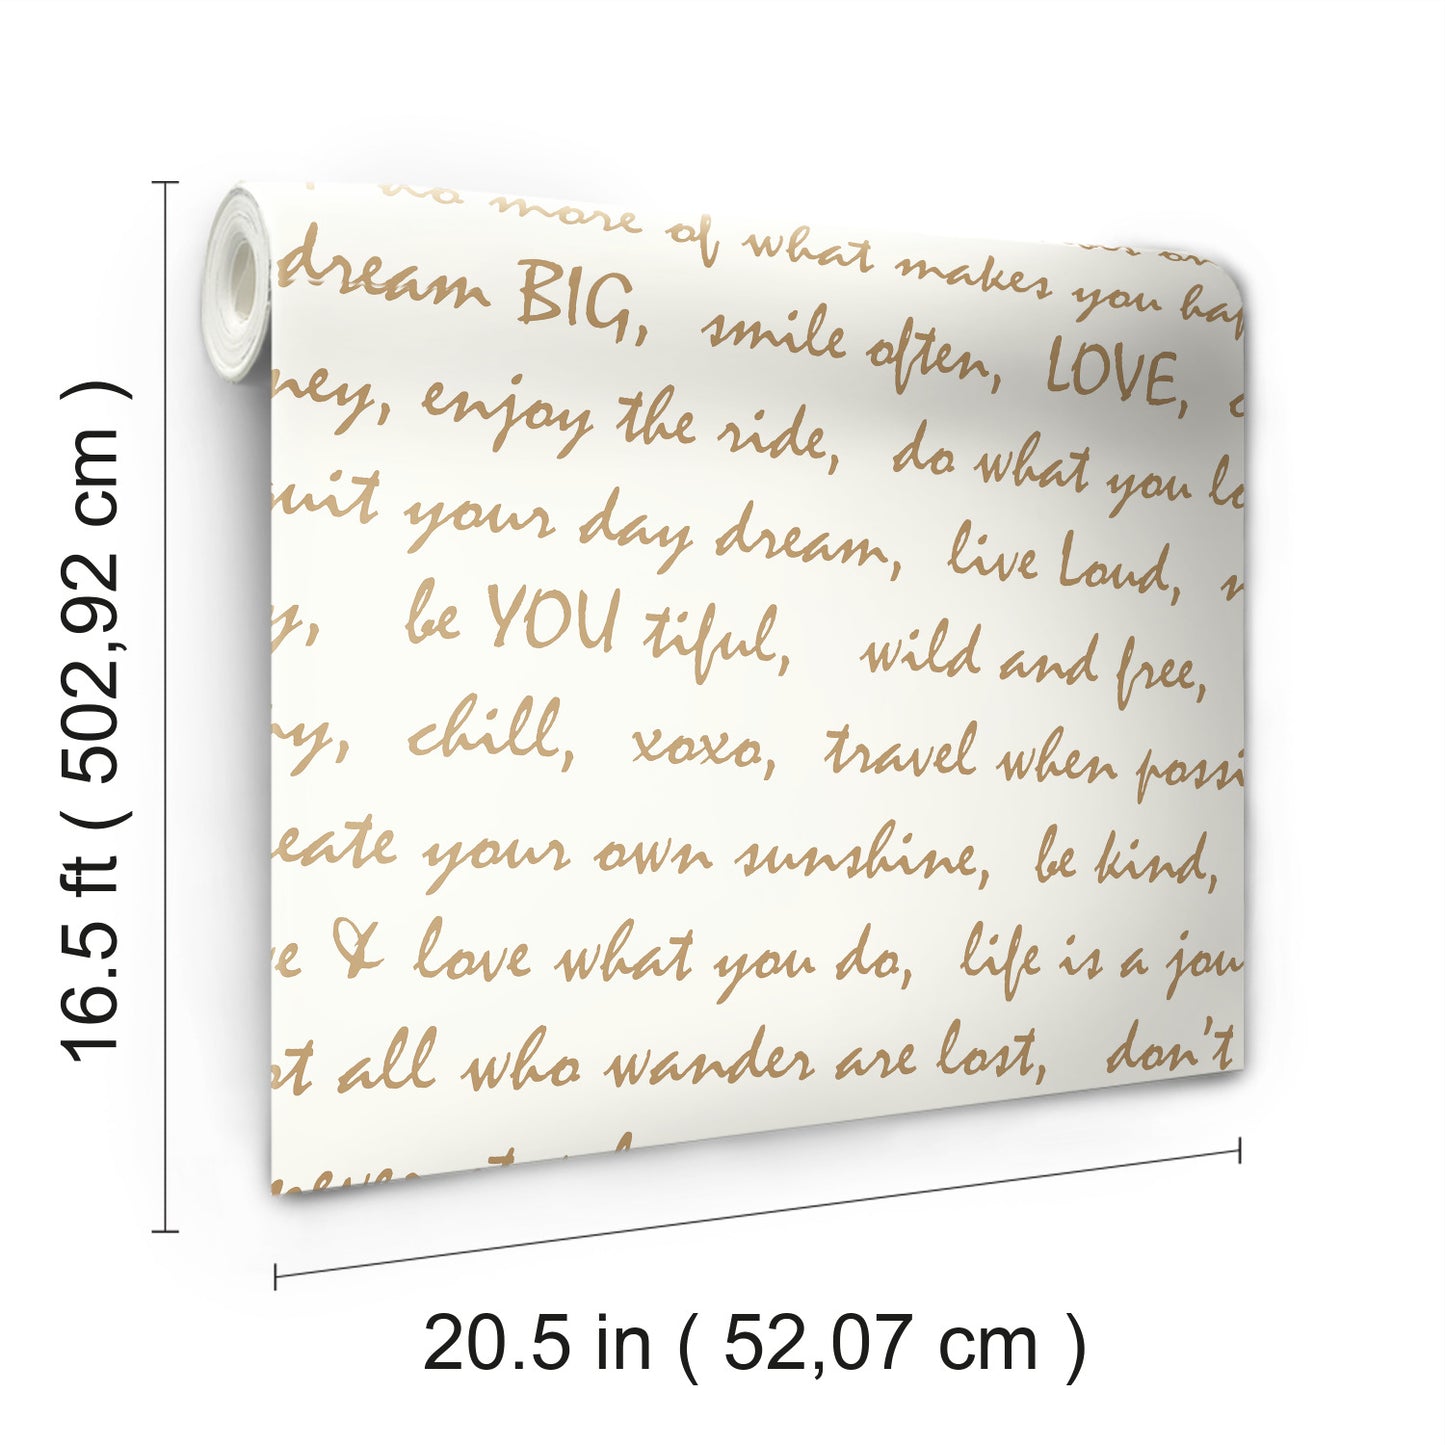 do more of what makes you
dream BIG, smile often, LOVE,
enjoy the ride, do what you
your day dream, live Loud,
be YOU tiful, wild and free,
chill, xoxo, travel when
your own sunshine, be kind,
& love what you do, life is a
all who wander are lost, don't
16.5 ft ( 502,92 cm )
20.5 in ( 52,07 cm )